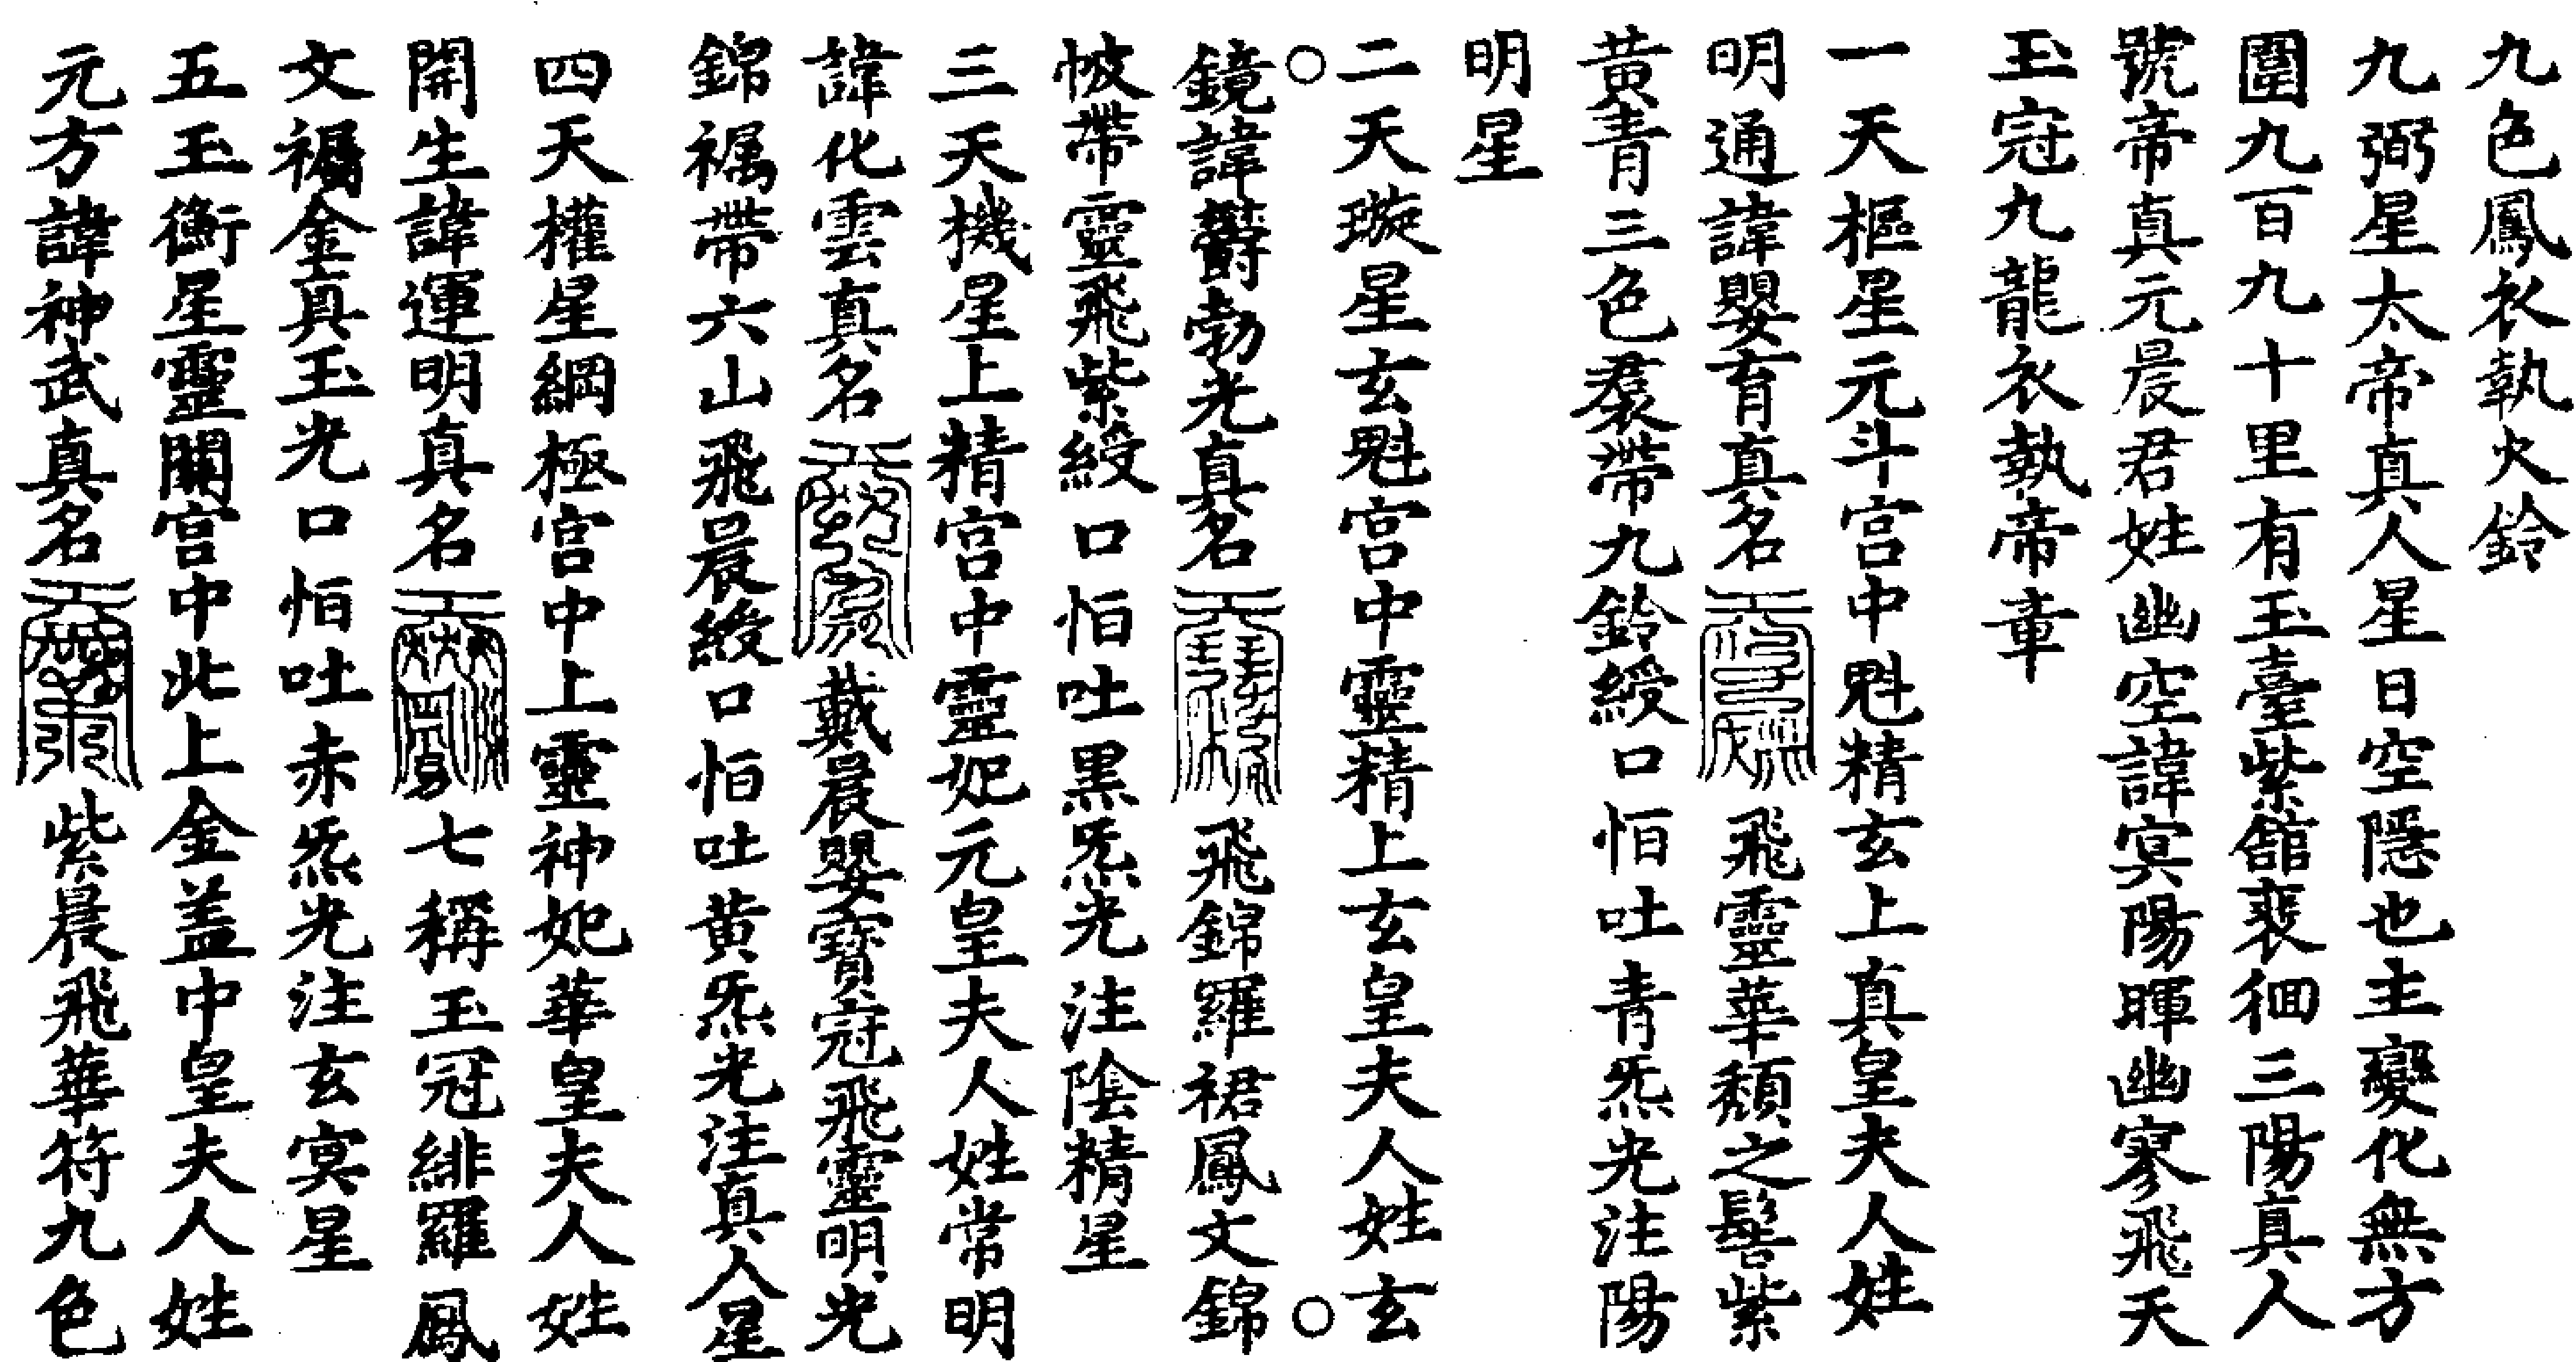 九色鳳衣執火鈴
九弼星太帝真人星日空隱也主變化無方
圍九百九十里有玉臺紫舘裵徊三陽真人
號帝真元晨君姓幽空諱㝠陽暉幽寥飛天
玉冠九龍衣執帝章
一天樞星元斗宫中魁精玄上真皇夫人姓
明通諱嬰育真名飛靈華頽之髻紫
黄青三色裠帶九鈴綬口恒吐青炁光注陽
明星
二天璇星玄魁宫中靈精上玄皇夫人姓玄
鏡諱欝勃光真名飛錦羅裙鳳文錦
帔帶靈飛紫綬口恒吐黒炁光注陰精星
三天機星上精宫中靈妃元皇夫人姓常明
諱化雲真名戴晨嬰寶冠飛靈明光
錦襦帶六山飛晨綬口恒吐黄炁光注真人星
四天權星綱極宫中上靈神妃華皇夫人姓
開生諱運明真名七稱玉冠緋羅鳳
文襦金真玉光口恒吐赤炁光注玄㝠星
五玉衡星靈關宫中此上金盖中皇夫人姓
元方諱神武真名紫晨飛華符九色